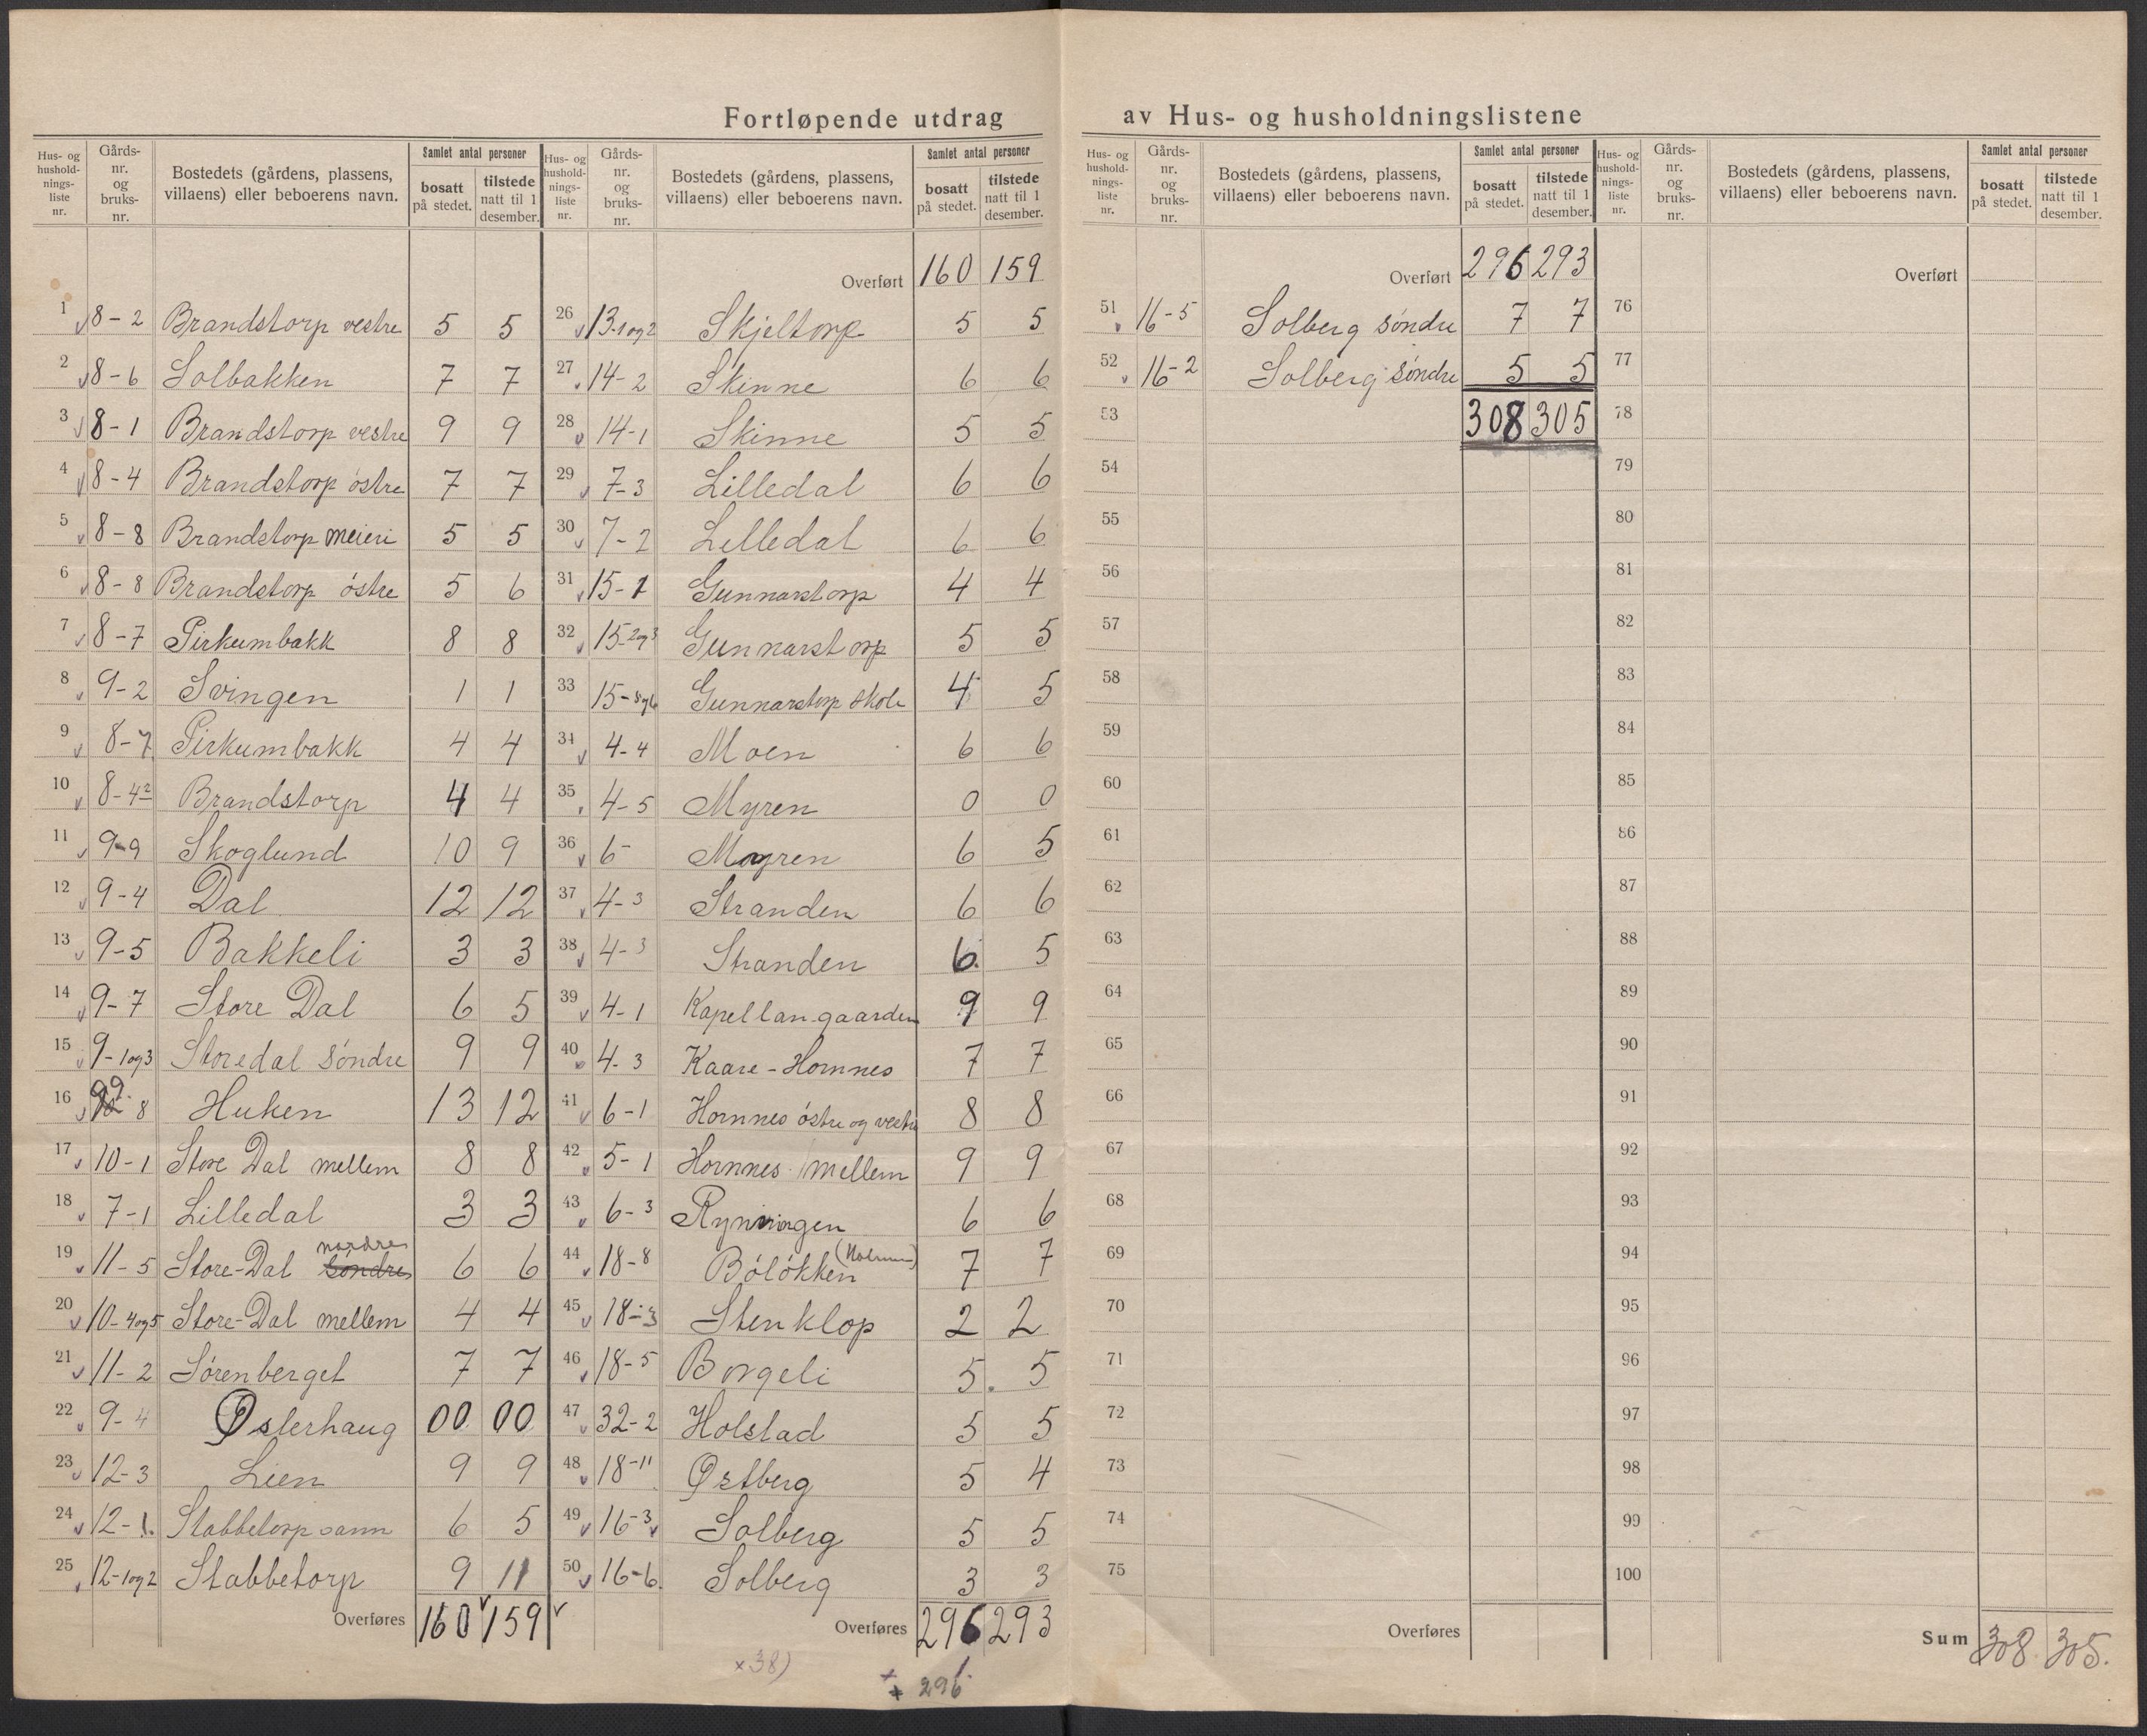 Fortløpende utdrag av Hus- og husholdningslistene
Hus- og hushold-nings-liste nr. Gårds-nr. og bruks-nr. Bostedets (gårdens, plassens, villaens) eller beboerens navn. Samlet antal personer bosatt på stedet. tilstede natt til 1 desember.
1 8-2 Brandstorp vestre 5 5
2 8-6 Solbakken 7 7
3 8-1 Brandstorp vestre 9 9
4 8-4 Brandstorp östre 7 7
5 8-8 Brandstorp meieri 5 5
6 8-8 Brandstorp östre 5 6
7 8-7 Pirkumbakk 8 8
8 9-2 Svingen 1 1
9 8-7 Pirkumbakk 4 4
10 8-42 Brandstorp 4 4
11 9-9 Skoglund 10 9
12 9-4 Dal 12 12
13 9-5 Bakkeli 3 3
14 9-7 Store Dal 6 5
15 9-1og3 Storedal söndre 9 9
16 8 Huken 13 12
17 10-1 Store Dal mellem 8 8
18 7-1 Lilledal 3 3
19 11-5 Store-Dal söndre nordre 6 6
20 10-4og5 Store-Dal mellem 4 4
21 11-2 Sörenberget 7 7
22 9-4 Østerhaug 00 00
23 12-3 Lien 9 9
24 12-1. Stabbetorp 6 5
25 12-1og2 Stabbetorp 9 11
Overføres 160 159
Hus- og hushold-nings-liste nr. Gårds-nr. og bruks-nr. Bostedets (gårdens, plassens, villaens) eller beboerens navn. Samlet antal personer bosatt på stedet. tilstede natt til 1 desember.
Overført 160 159
26 13-1og2 Skjeltorp 5 5
27 14-2 Skinne 6 6
28 14-1 Skinne 5 5
29 7-3 Lilledal 6 6
30 7-2 Lilledal 6 6
31 15-1 Gunnarstorp 4 4
32 15-2og3 Gunnarstorp 5 5
33 15- Gunnarstorp skole 4 5
34 4-4 Moen 6 6
35 4-5 Myren 0 0
36 6- Myren 6 5
37 4-3 Stranden 6 6
38 4-3 Stranden 6 5
39 4-1 Kapellangaarden 9 9
40 4-3 Kaare-Hornnes 7 7
41 6-1 Hornnes östre og vestre 8 8
42 5-1 Hornnes mellem 9 9
43 6-3 Rynningen 6 6
44 18-8 Bölökken 7 7
45 18-3 Stenklop 2 2
46 18-5 Borgeli 5. 5
47 32-2 Holstad 5 5
48 18-11 Østberg 5 4
49 16-3 Solberg 5 5
50 16-6. Solberg 3 3
Overføres 296 293
x38)
x 296
Hus- og hushold-nings-liste nr. Gårds-nr. og bruks-nr. Bostedets (gårdens, plassens, villaens) eller beboerens navn. Samlet antal personer bosatt på stedet. tilstede natt til 1 desember.
Overført 296 293
51 16-5 Solberg söndre 7 7
52 16-2 Solberg söndre 5 5
53 308 305
54
55
56
57
58
59
60
61
62
63
64
65
66
67
68
69
70
71
72
73
74
75
Overføres
Hus- og hushold-nings-liste nr. Gårds-nr. og bruks-nr. Bostedets (gårdens, plassens, villaens) eller beboerens navn. Samlet antal personer bosatt på stedet. tilstede natt til 1 desember.
Overført
76
77
78
79
80
81
82
83
84
85
86
87
88
89
90
91
92
93
94
95
96
97
98
99
100
Sum 308. 305.